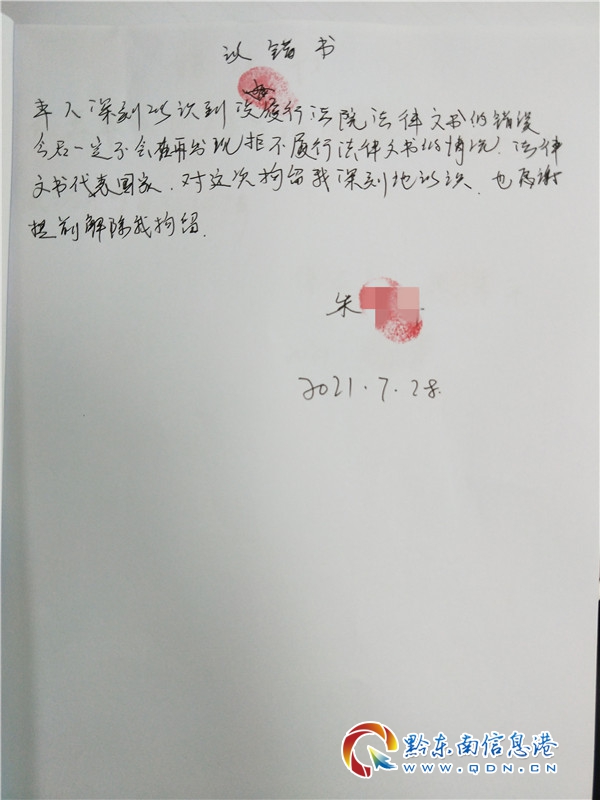 认错书
本人深刻认识到没履行法院法律文书的错误
今后一定不会在再出现拒不履行法律文书的情况.法律
文书代表国家.对这次拘留我深刻地认识.也感谢
提前解除我拘留.
朱
2021.7.28.
黔东南信息港
WWW.QDN.CN